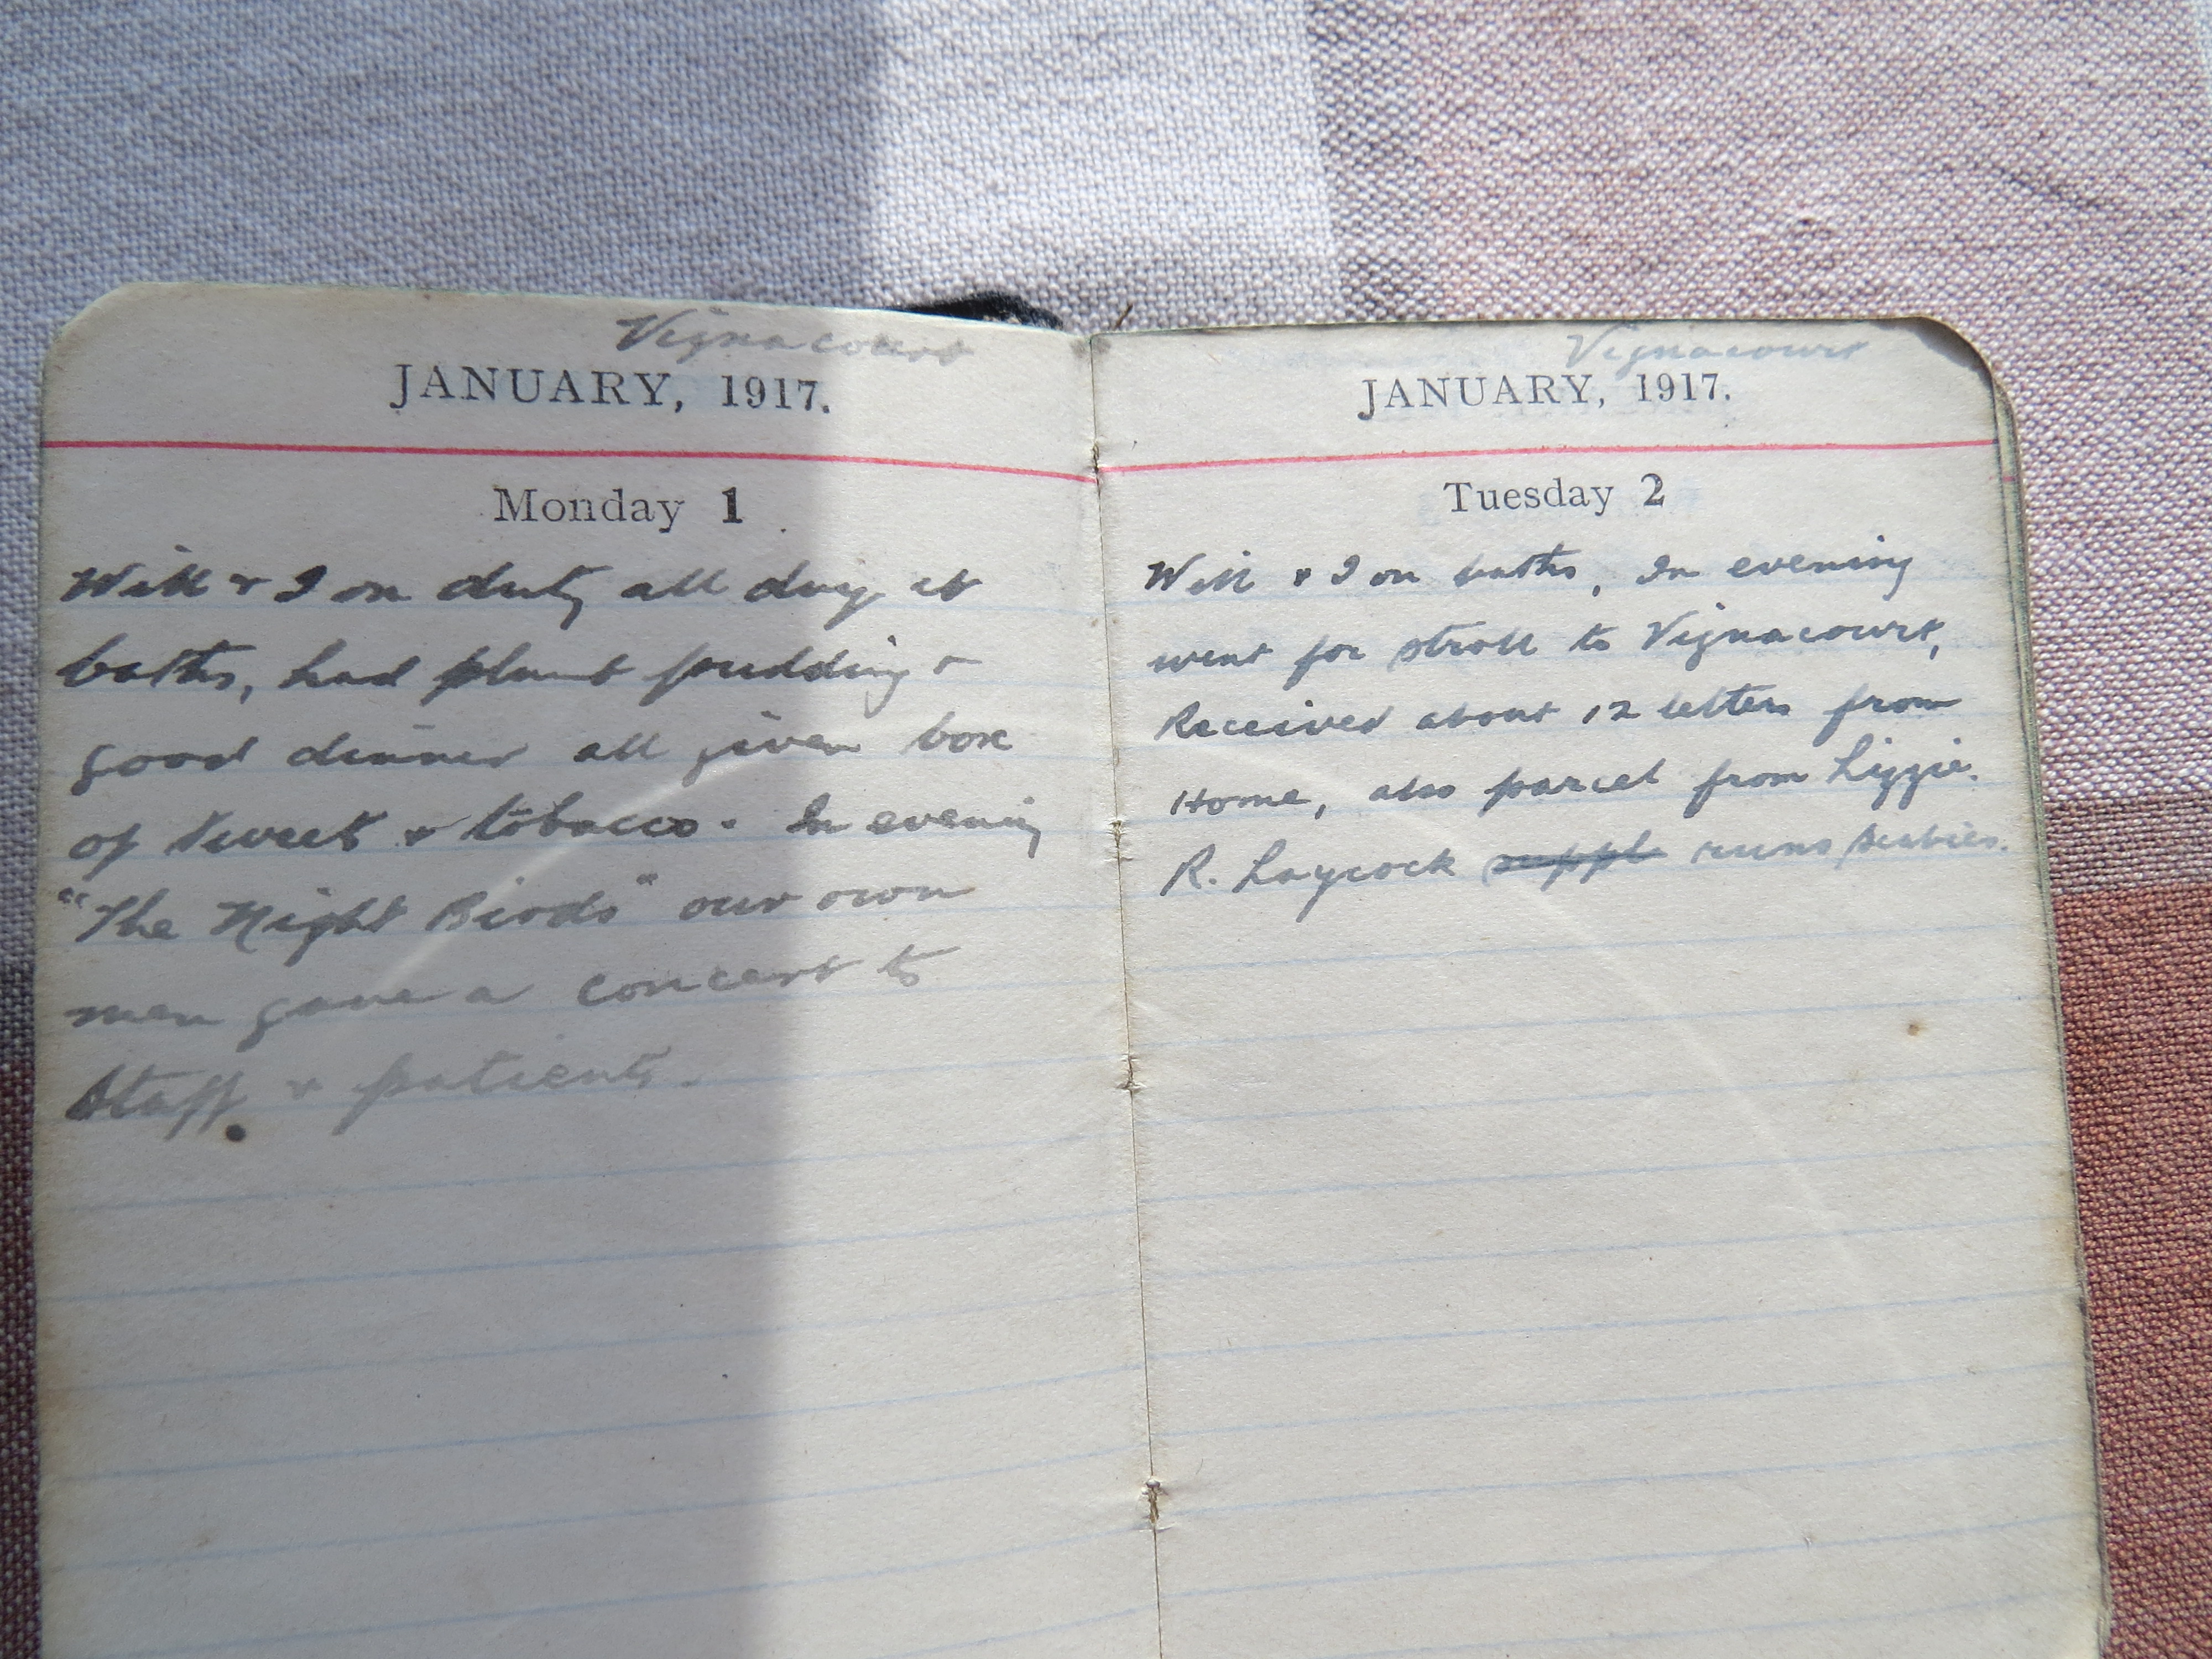 Vignacourt
JANUARY, 1917.
Monday 1
Will & I on duty all day at
baths, had plumb pudding &
good dinner all given box
of sweets & tobacco. In evening
"The Night Birds" our own
men gave a concert to
Staff & patients.
Vignacourt
JANUARY, 1917.
Tuesday 2
Will & I on baths, In evening
went for stroll to Vignacourt,
Received about 12 letters from
Home, also parcel from Lizzie.
R. Laycock suppl runs scabies.